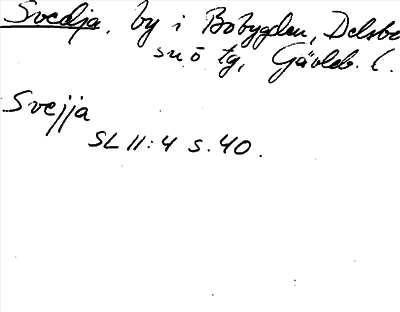 Svedja, by i Bobygden, Delsbo
sn o tg, Gävleb. l.
Svejja
SL 11:4 s. 40.